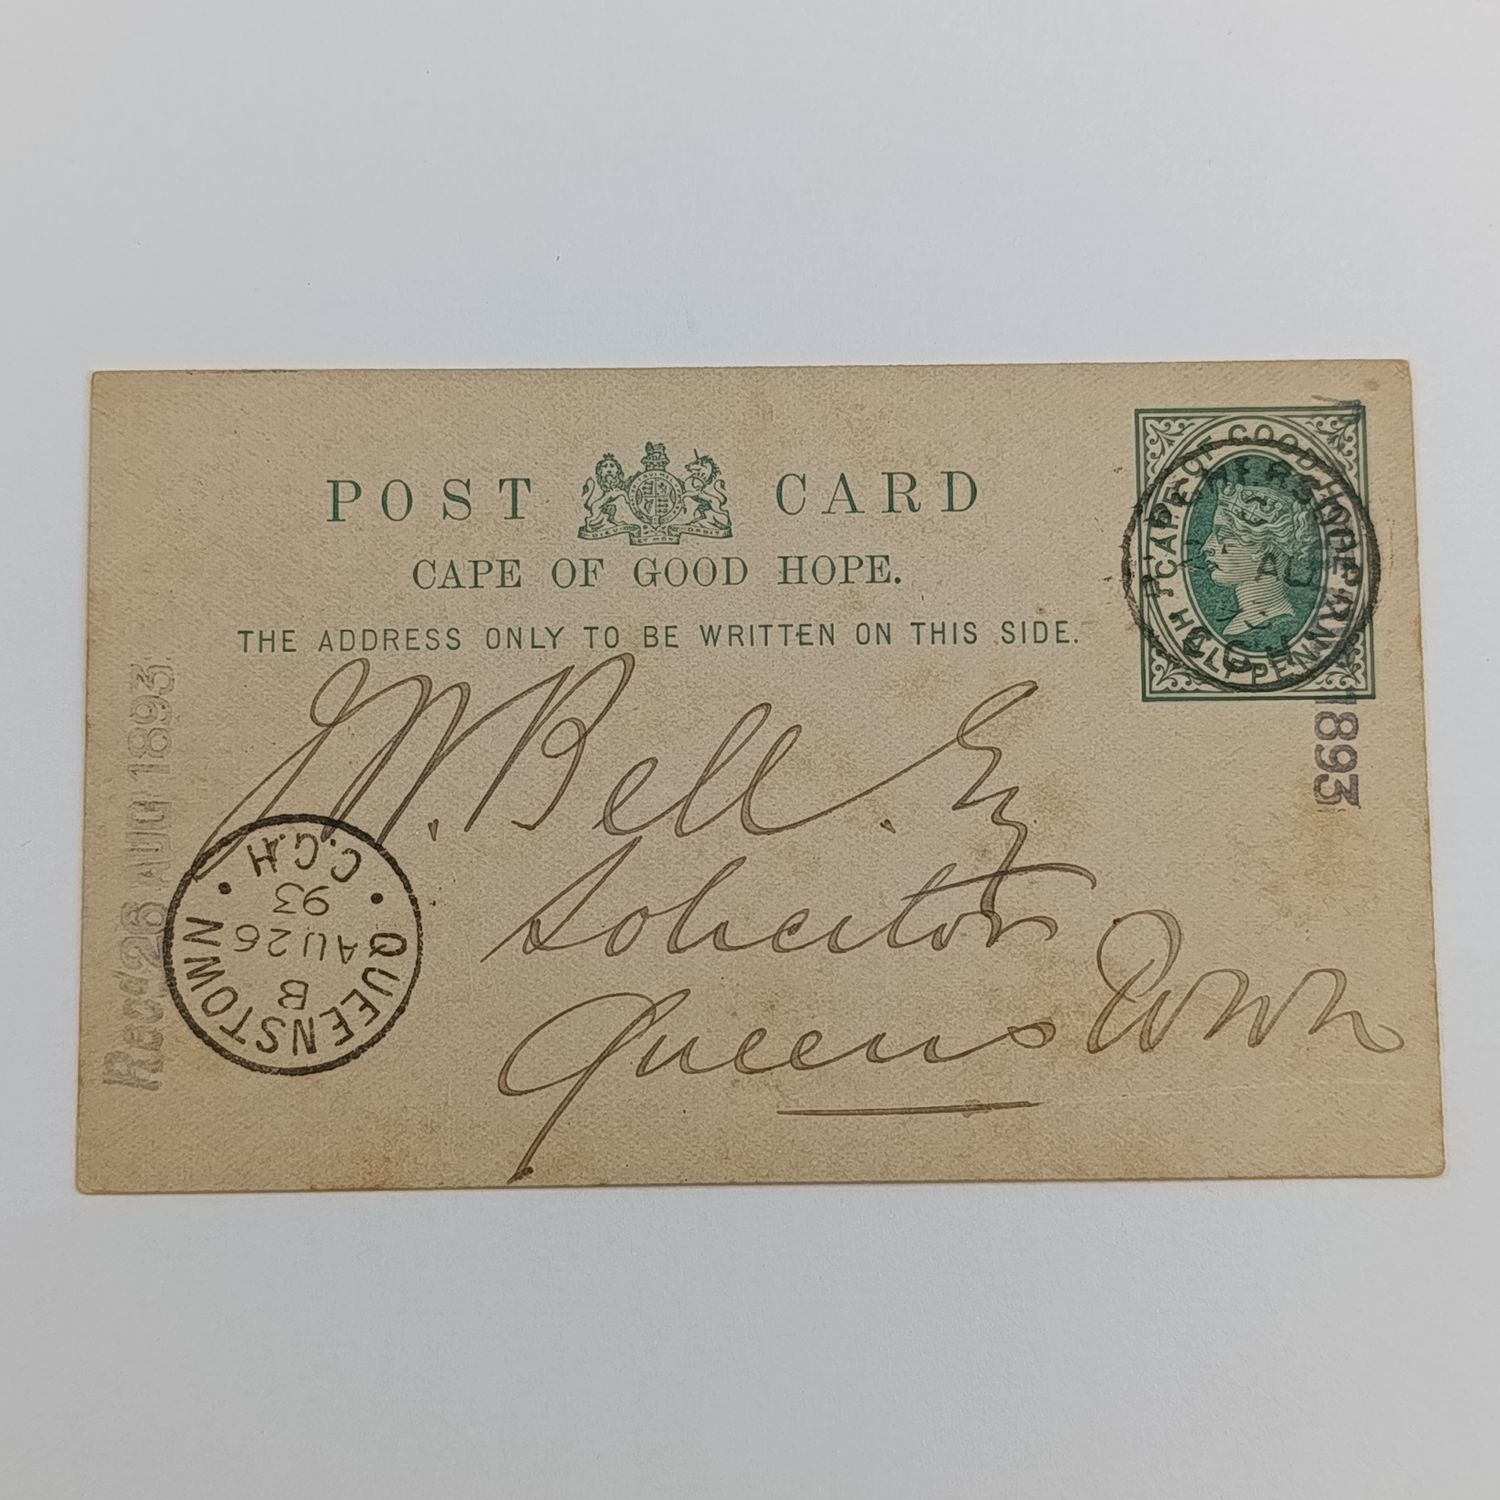 POST CARD
CAPE OF GOOD HOPE.
THE ADDRESS ONLY TO BE WRITTEN ON THIS SIDE.
CAPE OF GOOD HOPE
HALFPENNY
AU
1893
J. W. Bell. Esq
Solicitor
Queenstown
QUEENSTOWN
B
AU 26
93
C.G.H
Recd 26 AUG 1893